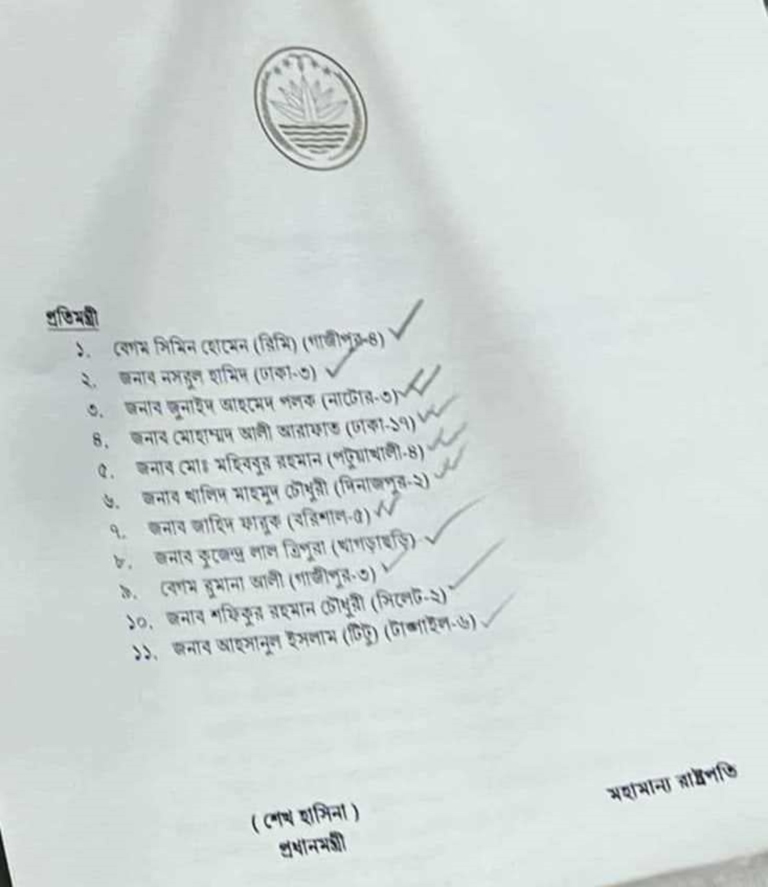 প্রতিমন্ত্রী
১. বেগম সিমিন হোমেন (রিমি) (গাজীপুর-৪)
২. জনাব নসরুল হামিদ (ঢাকা-৩)
৩. জনাব জুনাইদ আহমেদ পলক (নাটোর-৩)
৪. জনাব মোহাম্মদ আলী আরাফাত (ঢাকা-১৭)
৫. জনাব মোঃ মহিববুর রহমান (পটুয়াখালী-৪)
৬. জনাব খালিদ মাহমুদ চৌধুরী (দিনাজপুর-২)
৭. জনাব জাহিদ ফারুক (বরিশাল-৫)
৮. জনাব কুজেন্দ্র লাল ত্রিপুরা (খাগড়াছড়ি)
৯. বেগম রুমানা আলী (গাজীপুর-৩)
১০. জনাব শফিকুর রহমান চৌধুরী (সিলেট-২)
১১. জনাব আহসানুল ইসলাম (টিটু) (টাঙ্গাইল-৬)
(শেখ হাসিনা)
প্রধানমন্ত্রী
মহামান্য রাষ্ট্রপতি